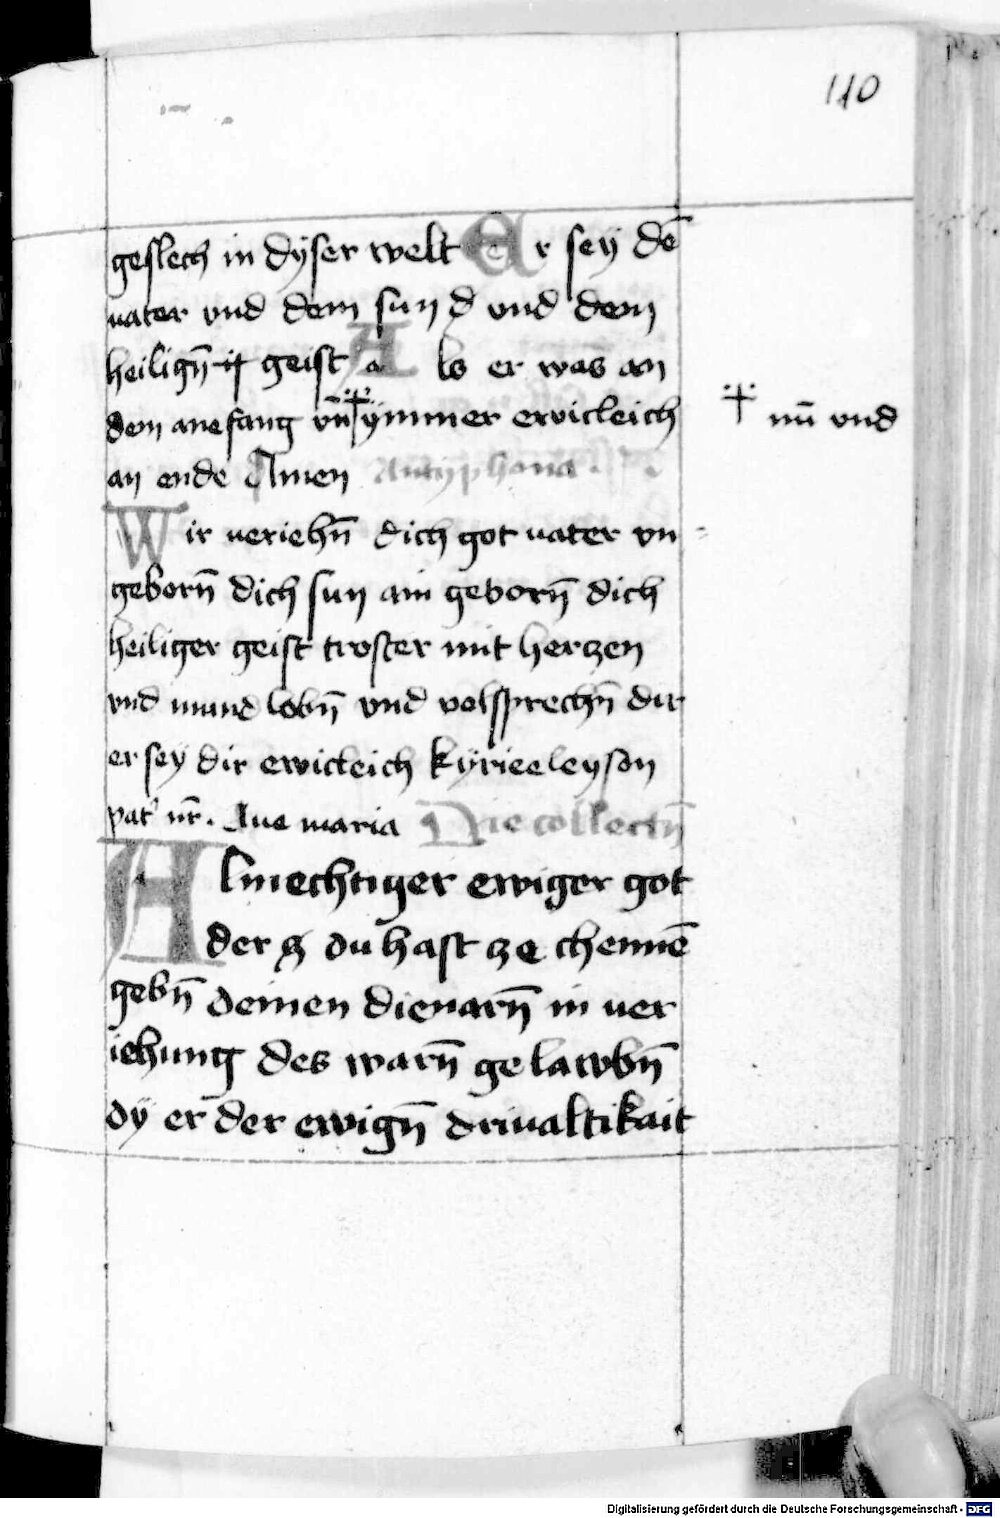 110
geslech in dyser welt Er sey dē
vater vnd dem sun d vnd dem
heilign̄ geist Als er was an
dem anefang vn̄ ymmer ewicleich
nū vnd
an ende Amen Antyphona
Wir veriehn̄ dich got vater vn
geborn̄ dich sun ain geborn̄ dich
heiliger geist troster mit herczen
vnd mund lobn̄ vnd volsprechn̄ dir
er sey dir ewicleich kyrieeleyson
pat' nr̄. Aue maria Die collectn̄
Almechtiger ewiger got
der du hast ze chennē
gebn̄ deinen dienarn̄ in ver
iehung des warn̄ gelawbn̄
dy er der ewign̄ driualtikait
Digitalisierung gefördert durch die Deutsche Forschungsgemeinschaft - DFG